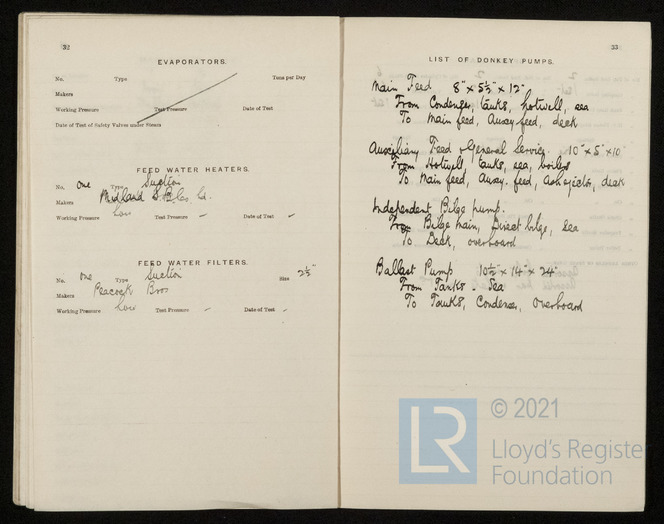 32
EVAPORATORS.
No. Type Tons per Day
Makers
Working Pressure Test Pressure Date of Test
Date of Test of Safety Valves under Steam
FEED WATER HEATERS.
No. One Type Suction
Makers Midland Ld.
Working Pressure Low Test Pressure – Date of Test –
FEED WATER FILTERS.
No. One Type Suction Size 2½"
Makers Peacock Bros
Working Pressure Low Test Pressure – Date of Test –
33
LIST OF DONKEY PUMPS.
Main Feed 8" x 5½" x 12"
From Condenser, tanks, hotwell, sea
To Main feed, Auxy feed, deck
Auxiliary Feed & General Service 10" x 5" x 10"
From Hotwell tanks, sea, boilers
To Main feed, Auxy. feed, Ash ejector, deck
Independent Bilge pump.
From Bilge main, Direct bilge, sea
To Deck, overboard
Ballast Pump 10½" x 14" x 24"
From Tanks - Sea
To Tanks, Condenser, Overboard
LR
© 2021
Lloyd's Register
Foundation